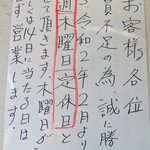 お客様各位
員不足の為、誠に勝
令和2年2月より
週木曜日定休日と
て頂きます。木曜日が
に当たる日は
営業します!